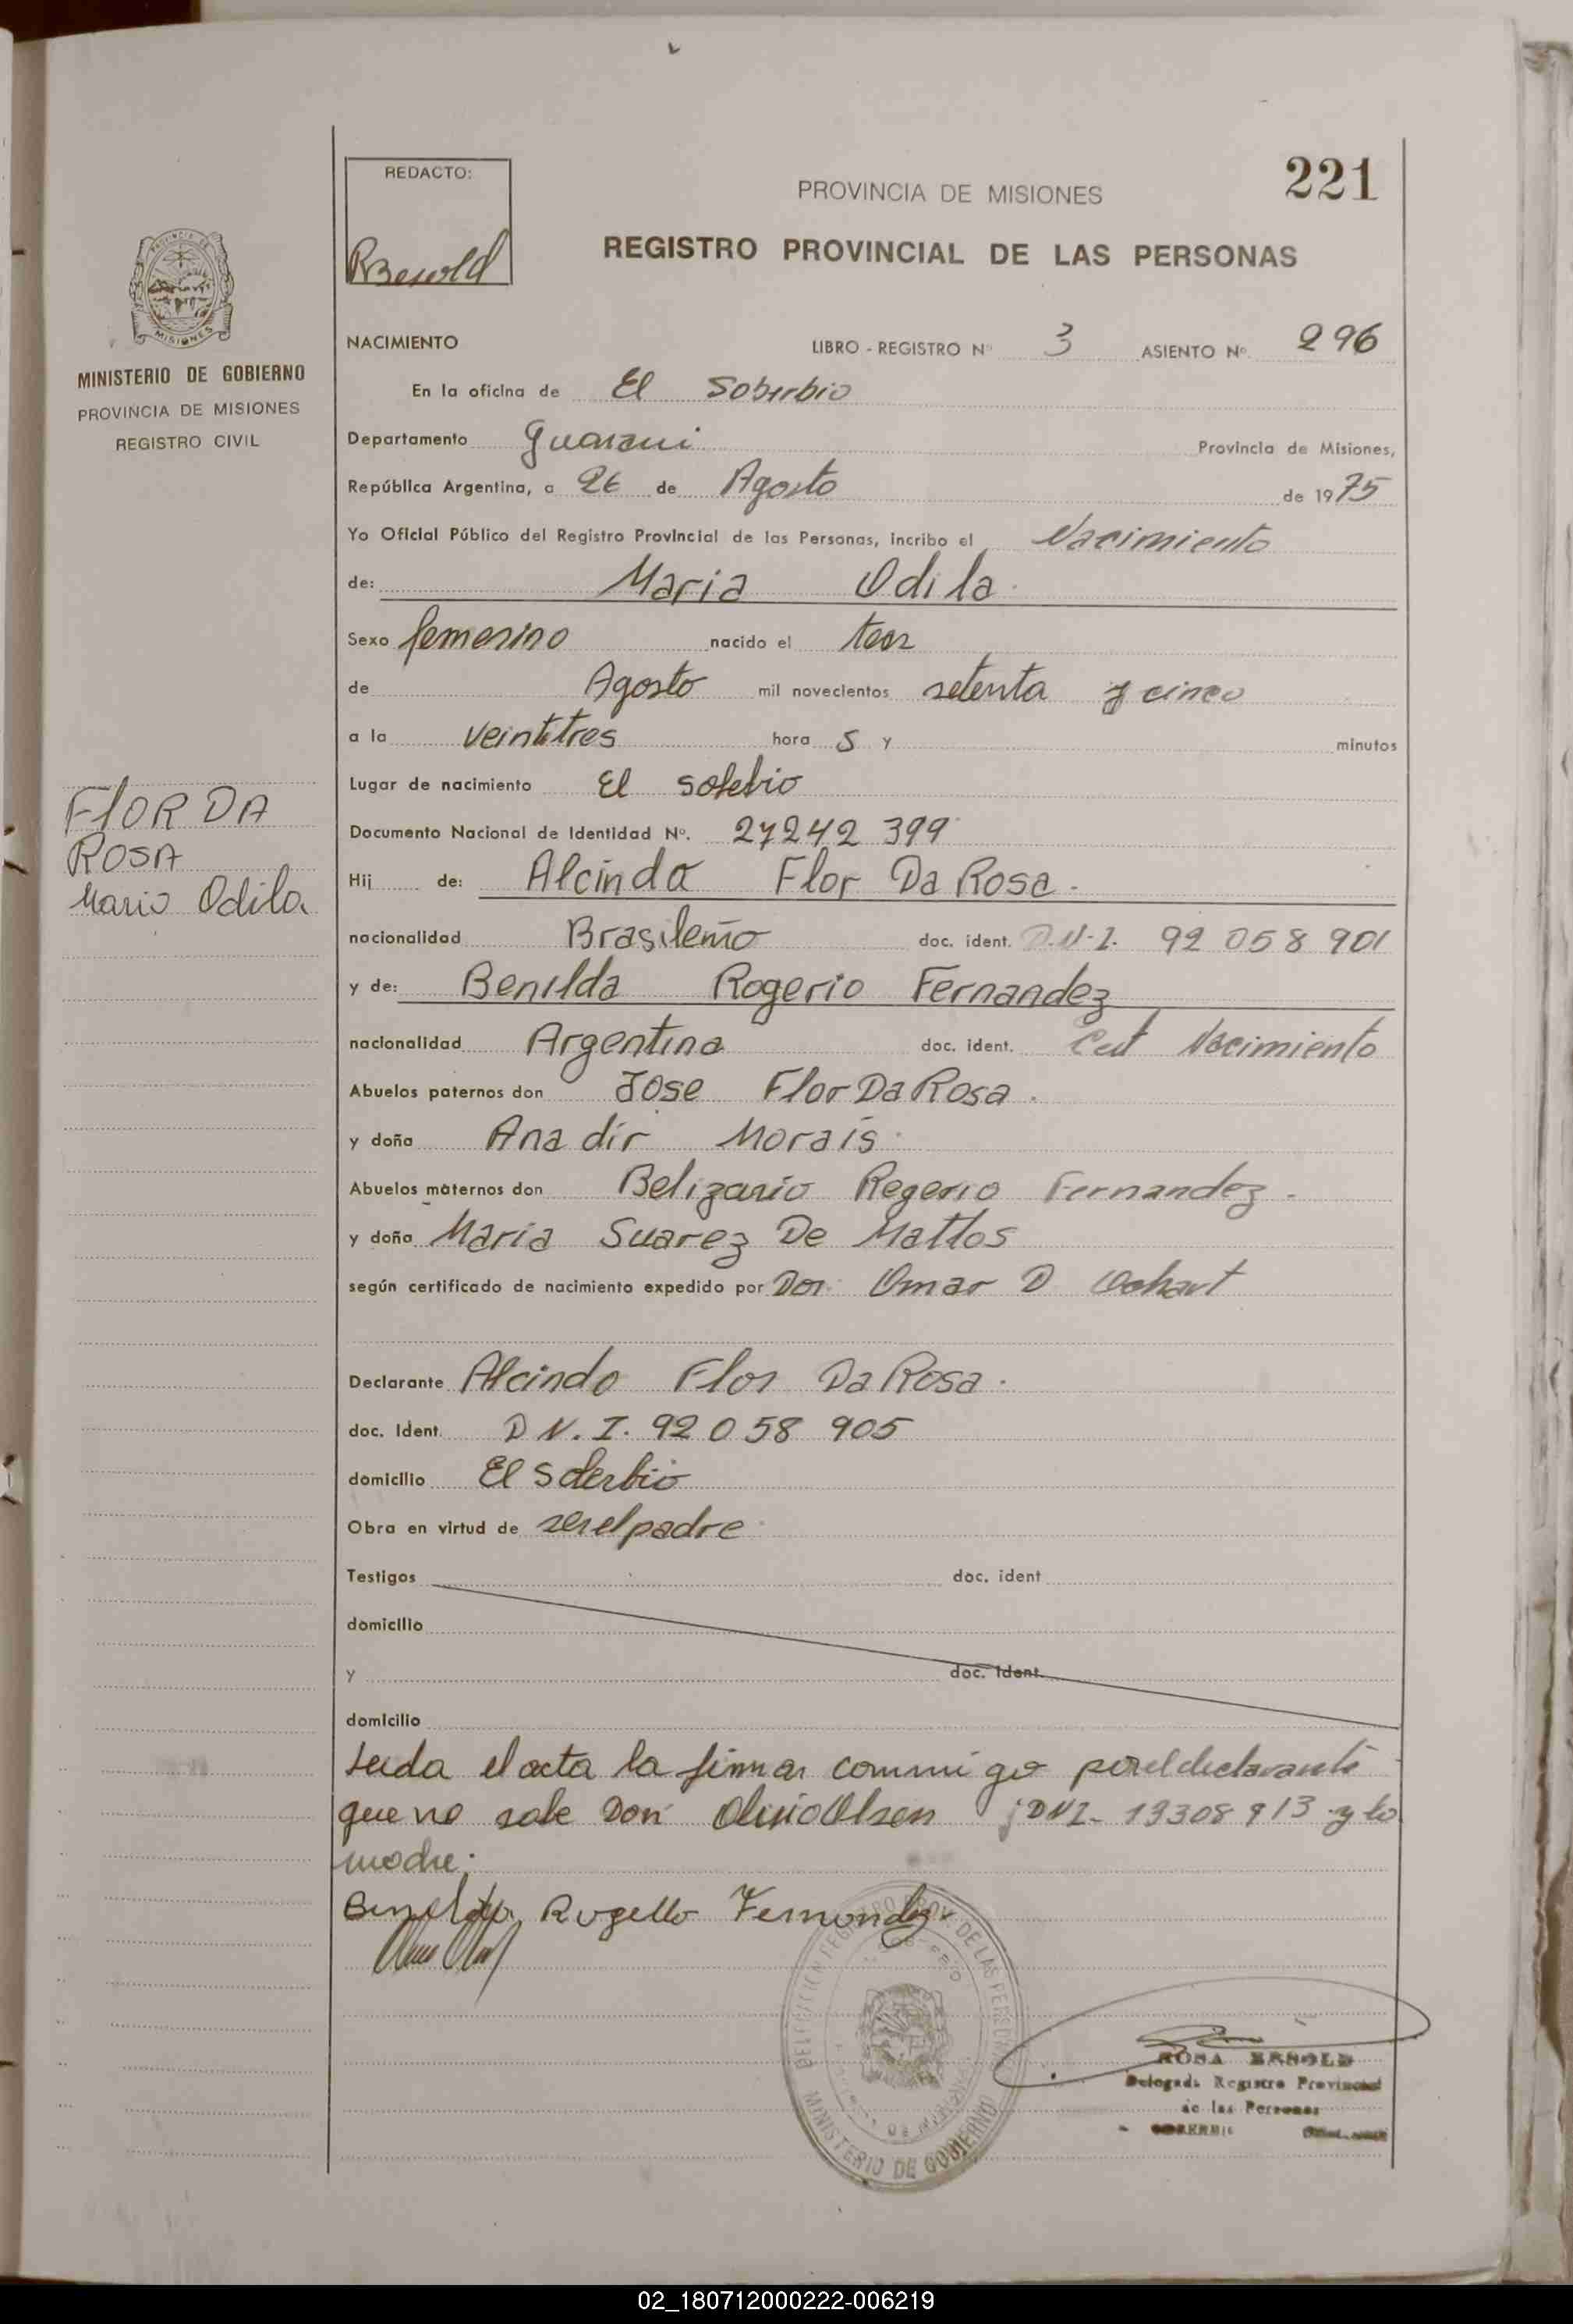 221
REDACTO:
PROVINCIA DE MISIONES
REGISTRO PROVINCIAL DE LAS PERSONAS
RBesold
PROVINCIA DE
MISIONES
MINISTERIO DE GOBIERNO
PROVINCIA DE MISIONES
REGISTRO CIVIL
NACIMIENTO LIBRO - REGISTRO Nº 3 ASIENTO Nº 296
En la oficina de El Soberbio
Departamento Guarani Provincia de Misiones,
República Argentina, a 26 de Agosto de 1975
Yo Oficial Público del Registro Provincial de las Personas, incribo el Nacimiento
de: Maria Odila.
Sexo femenino nacido el
de Agosto mil novecientos setenta y cinco
a la veintitres hora s y minutos
Lugar de nacimiento El
FlOR DA
ROSA
Maria Odila
Documento Nacional de Identidad Nº. 27242 399
Hij de: Alcindo Flor Da Rosa.
nacionalidad Brasileño doc. ident. D.N.I. 92 058 901
y de: Benilda Rogerio Fernandez
nacionalidad Argentina doc. ident. Cert Nacimiento
Abuelos paternos don Jose Flor Da Rosa.
y doña Ana dir Morais.
Abuelos maternos don Belizario Regerio Fernandez.
y doña Maria Suarez De Mattos
según certificado de nacimiento expedido por Dor. Omar D
Declarante Alcindo Flor Da Rosa.
doc. Ident. D N. I. 92 058 905
domicilio El
Obra en virtud de ser el padre
Testigos doc. ident
domicilio
y doc. Ident.
domicilio
Leida el acta la firman conmigo por el declarante
que no sabe Don Olsen DNI- 13308 913 y la
madre.
Rogello Fernandez
DE LAS PERSONAS
MINISTERIO DE GOBIERNO
ROSA BESOLD
Delegada Registro Provincial
de las Personas
02_180712000222-006219